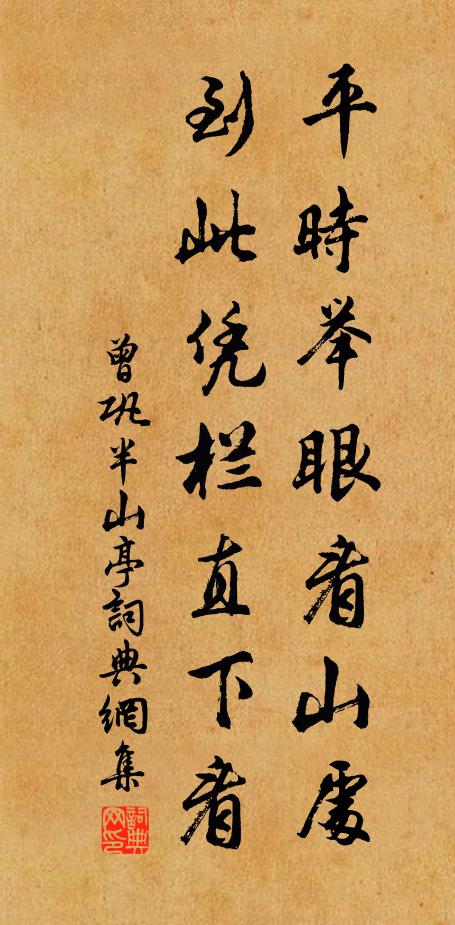 平時举眼看山處
到此凭栏直下看
曾巩半山亭詞典網集
詞典网印